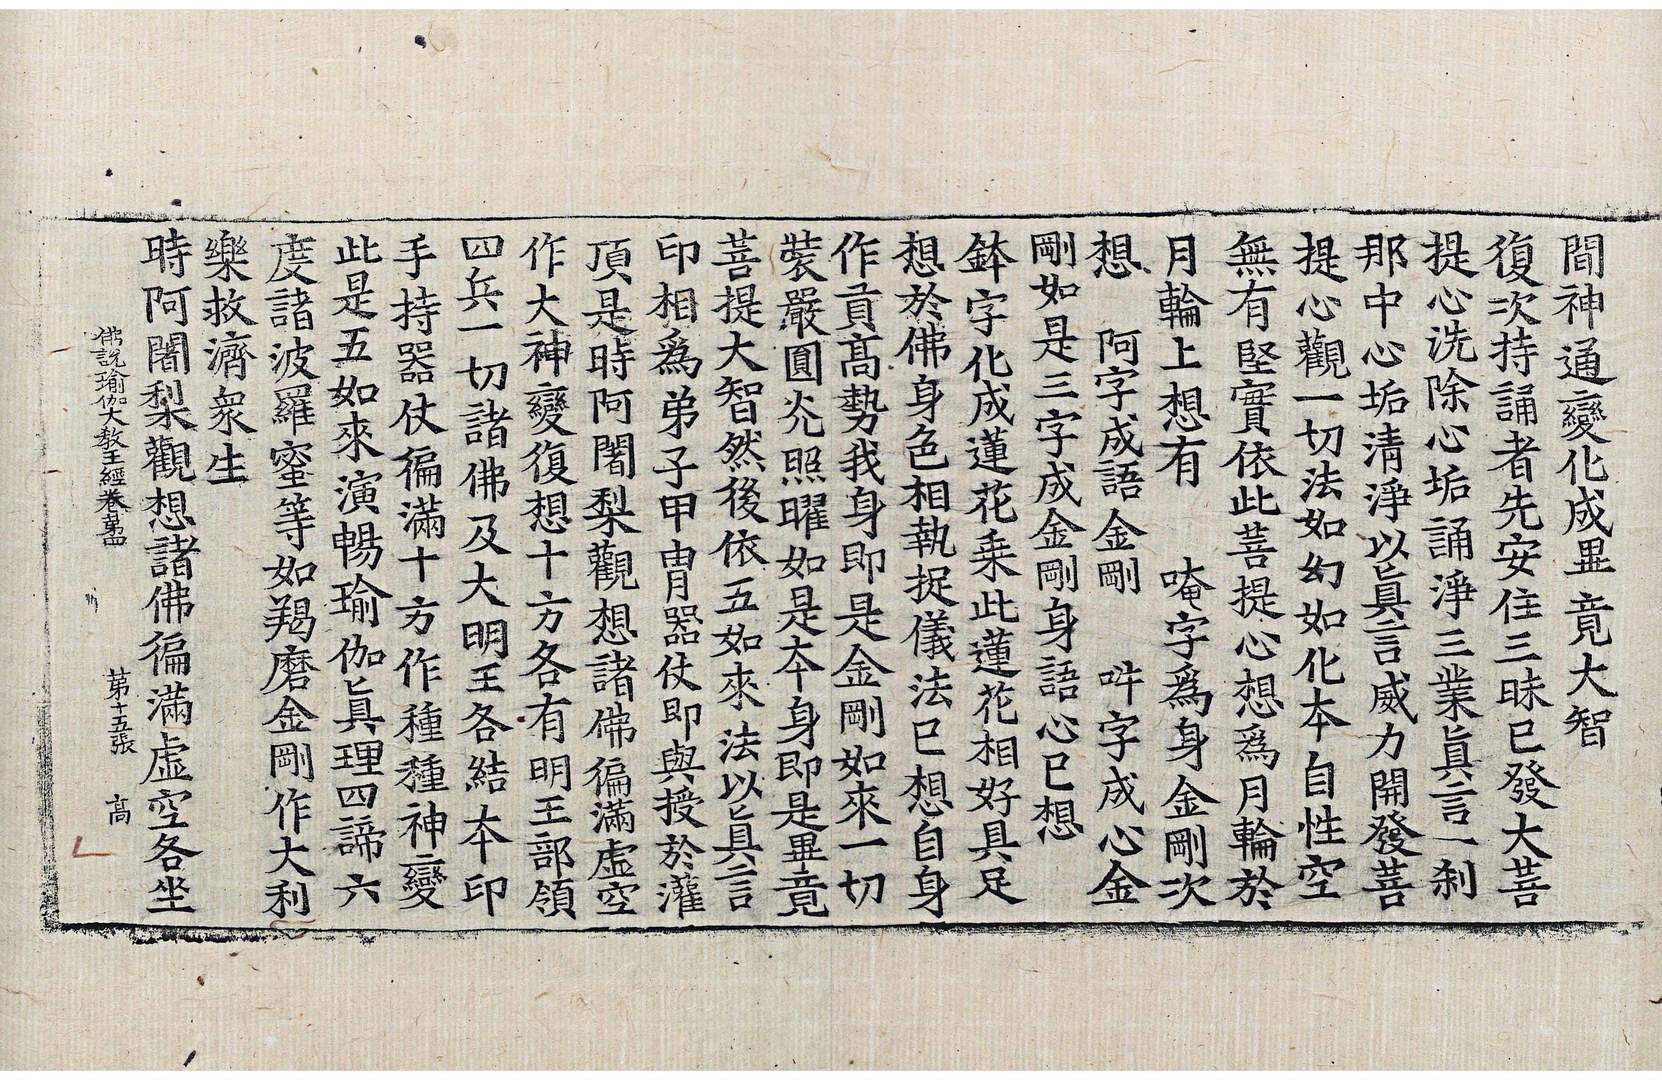 間神通變化成畢竟大智
復次持誦者先安住三昧已發大菩
提心洗除心垢誦淨三業眞言一刹
那中心垢清淨以眞言威力開發菩
提心觀一切法如幻如化本自性空
無有堅實依此菩提心想爲月輪於
月輪上想有　唵字爲身金剛次
想　阿字成語金剛　吽字成心金
剛如是三字成金剛身語心已想
鉢字化成蓮花乘此蓮花相好具足
想於佛身色相執捉儀法已想自身
作貢高勢我身即是金剛如來一切
裝嚴圓光照曜如是本身即是畢竟
菩提大智然後依五如來法以眞言
印相爲弟子甲冑器仗即與授於灌
頂是時阿闍梨觀想諸佛徧滿虛空
作大神變復想十方各有明王部領
四兵一切諸佛及大明王各結本印
手持器仗徧滿十方作種種神變
此是五如來演暢瑜伽眞理四諦六
度諸波羅蜜等如羯磨金剛作大利
樂救濟衆生
時阿闍梨觀想諸佛徧滿虛空各坐
佛說瑜伽大教王經卷第四　第十五張　高